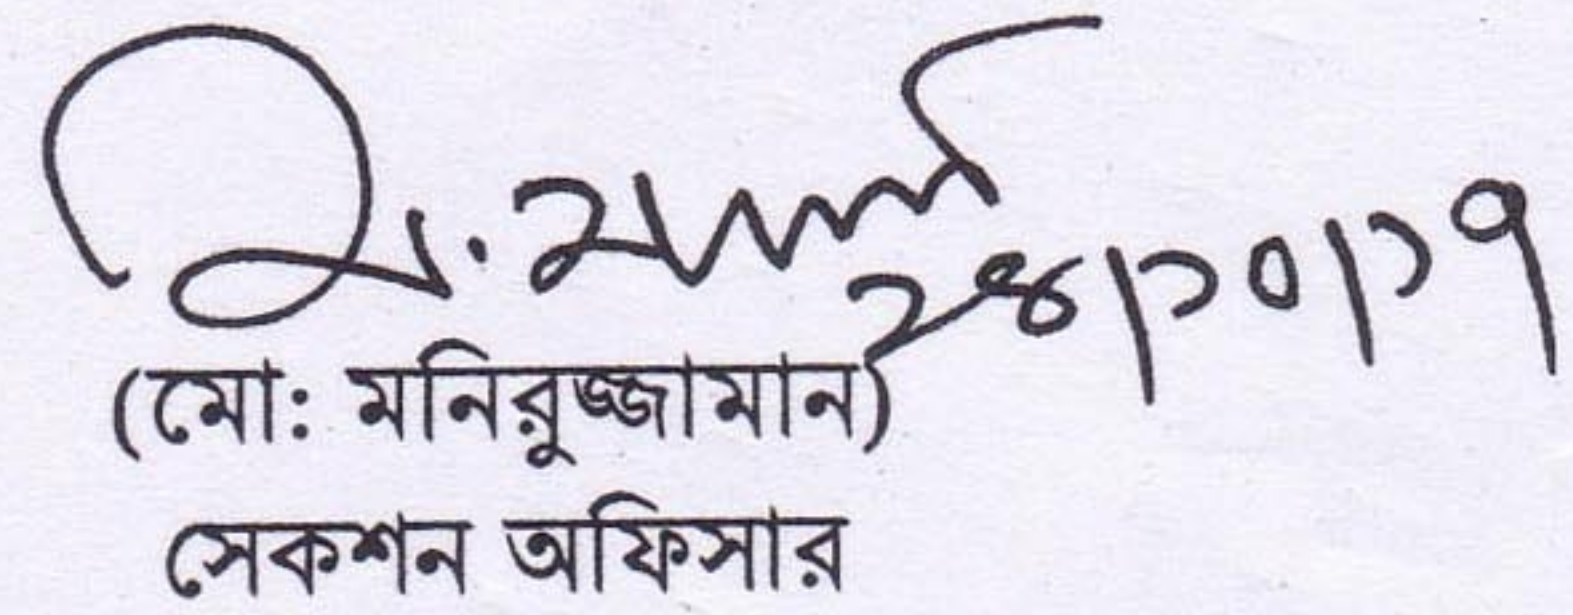 ২৪/১০/১৭
(মো: মনিরুজ্জামান)
সেকশন অফিসার